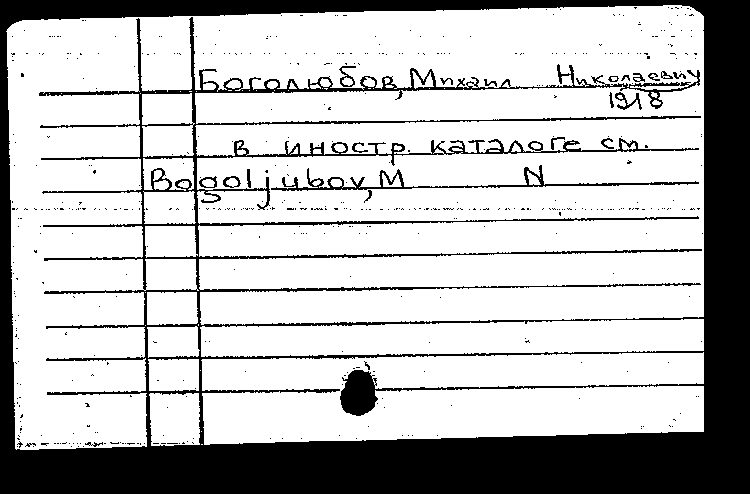 Боголюбов, Михаил Николаевич
1918
в иностр. каталоге см.
Bogoljubov, M N